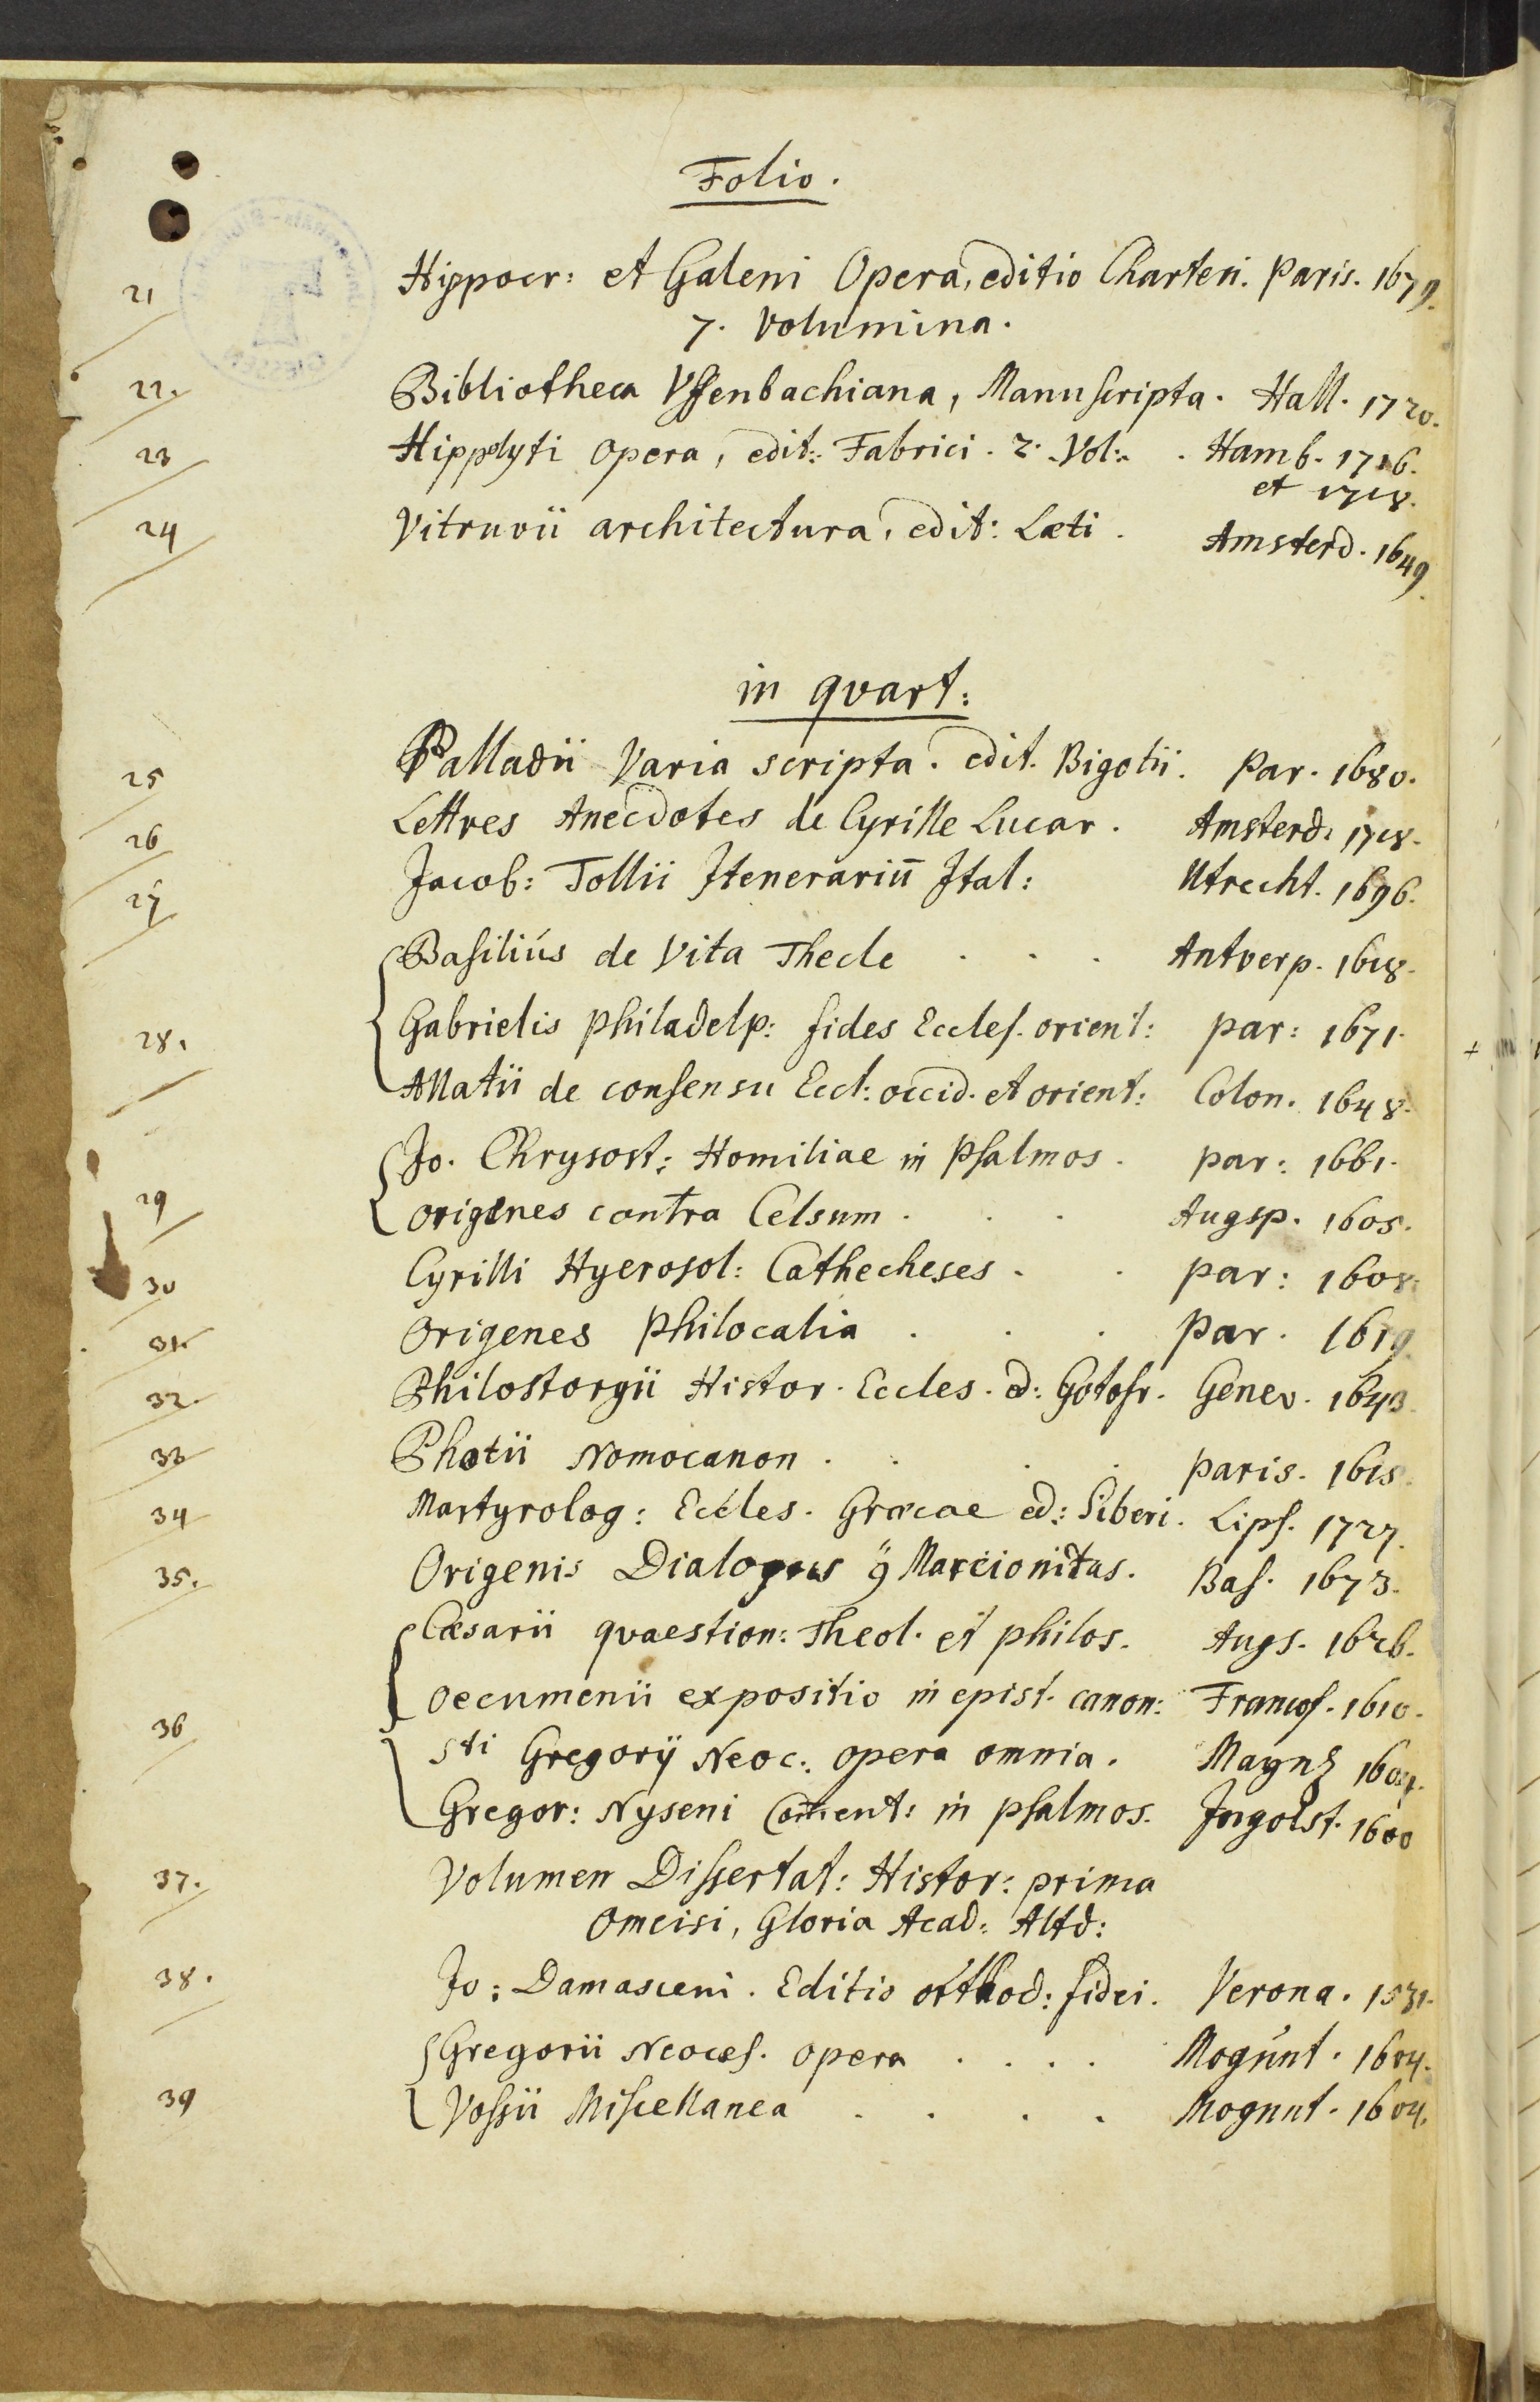 Folio.
21 Hippocr: et Galeni Opera, editio Charteri. Paris. 1679.
7. Volumina.
22. Bibliotheca Uffenbachiana, Manuscripta. Hall. 1720.
23 Hippolyti Opera, edit: Fabrici. 2. Vol: . Hamb. 1716.
et 1718.
24 Vitruvii architectura, edit: Læti. Amsterd. 1649.
in quart:
25 Palladii Varia scripta. edit. Bigotii. Par. 1680.
26 Lettres Anecdotes de Cyrille Lucar. Amsterd. 1718.
27 Jacob: Tollii Itenerariū Ital: Utrecht. 1696.
Basiliús de Vita Thecle . . . Antverp. 1618.
28. Gabrielis Philadelp: fides Eccles. orient: par: 1671.
Allatii de consensu Eccl: occid. et orient: Colon. 1648.
Jo. Chrysost: Homiliae in Psalmos. par: 1661.
29 Origenes contra Celsum . . . Augsp. 1605.
30 Cyrilli Hyerosol: Cathecheses . . par: 1608.
31. Origenes Philocalia . . . Par. 1619.
32. Philostorgii Histor. Eccles. ed: Gotofr. Genev. 1643.
33 Photii Nomocanon . . . . Paris. 1615.
34 Martyrolog: Eccles. Græcae ed: Siberi. Lips. 1727.
35. Origenis Dialogus Marcionitas. Bas. 1673.
Cæsarii qvaestion: Theol. et philos. Augs. 1626.
Oecumenii expositio in epist. canon: Francof. 1610.
36 Sti Gregorij Neoc: opera omnia. Maynz 1604.
Gregor: Nyseni Coment: in psalmos. Ingolst. 1600
37. Volumen Dissertat: Histor: prima
Omeisi, Gloria Acad: Altd:
38. Jo: Damasceni. Editio orthod: fidei. Verona. 1531.
Gregorii Neocæs. opera . . . . Mogúnt. 1604.
39 Vossii Miscellanea . . . . Mogunt. 1604.